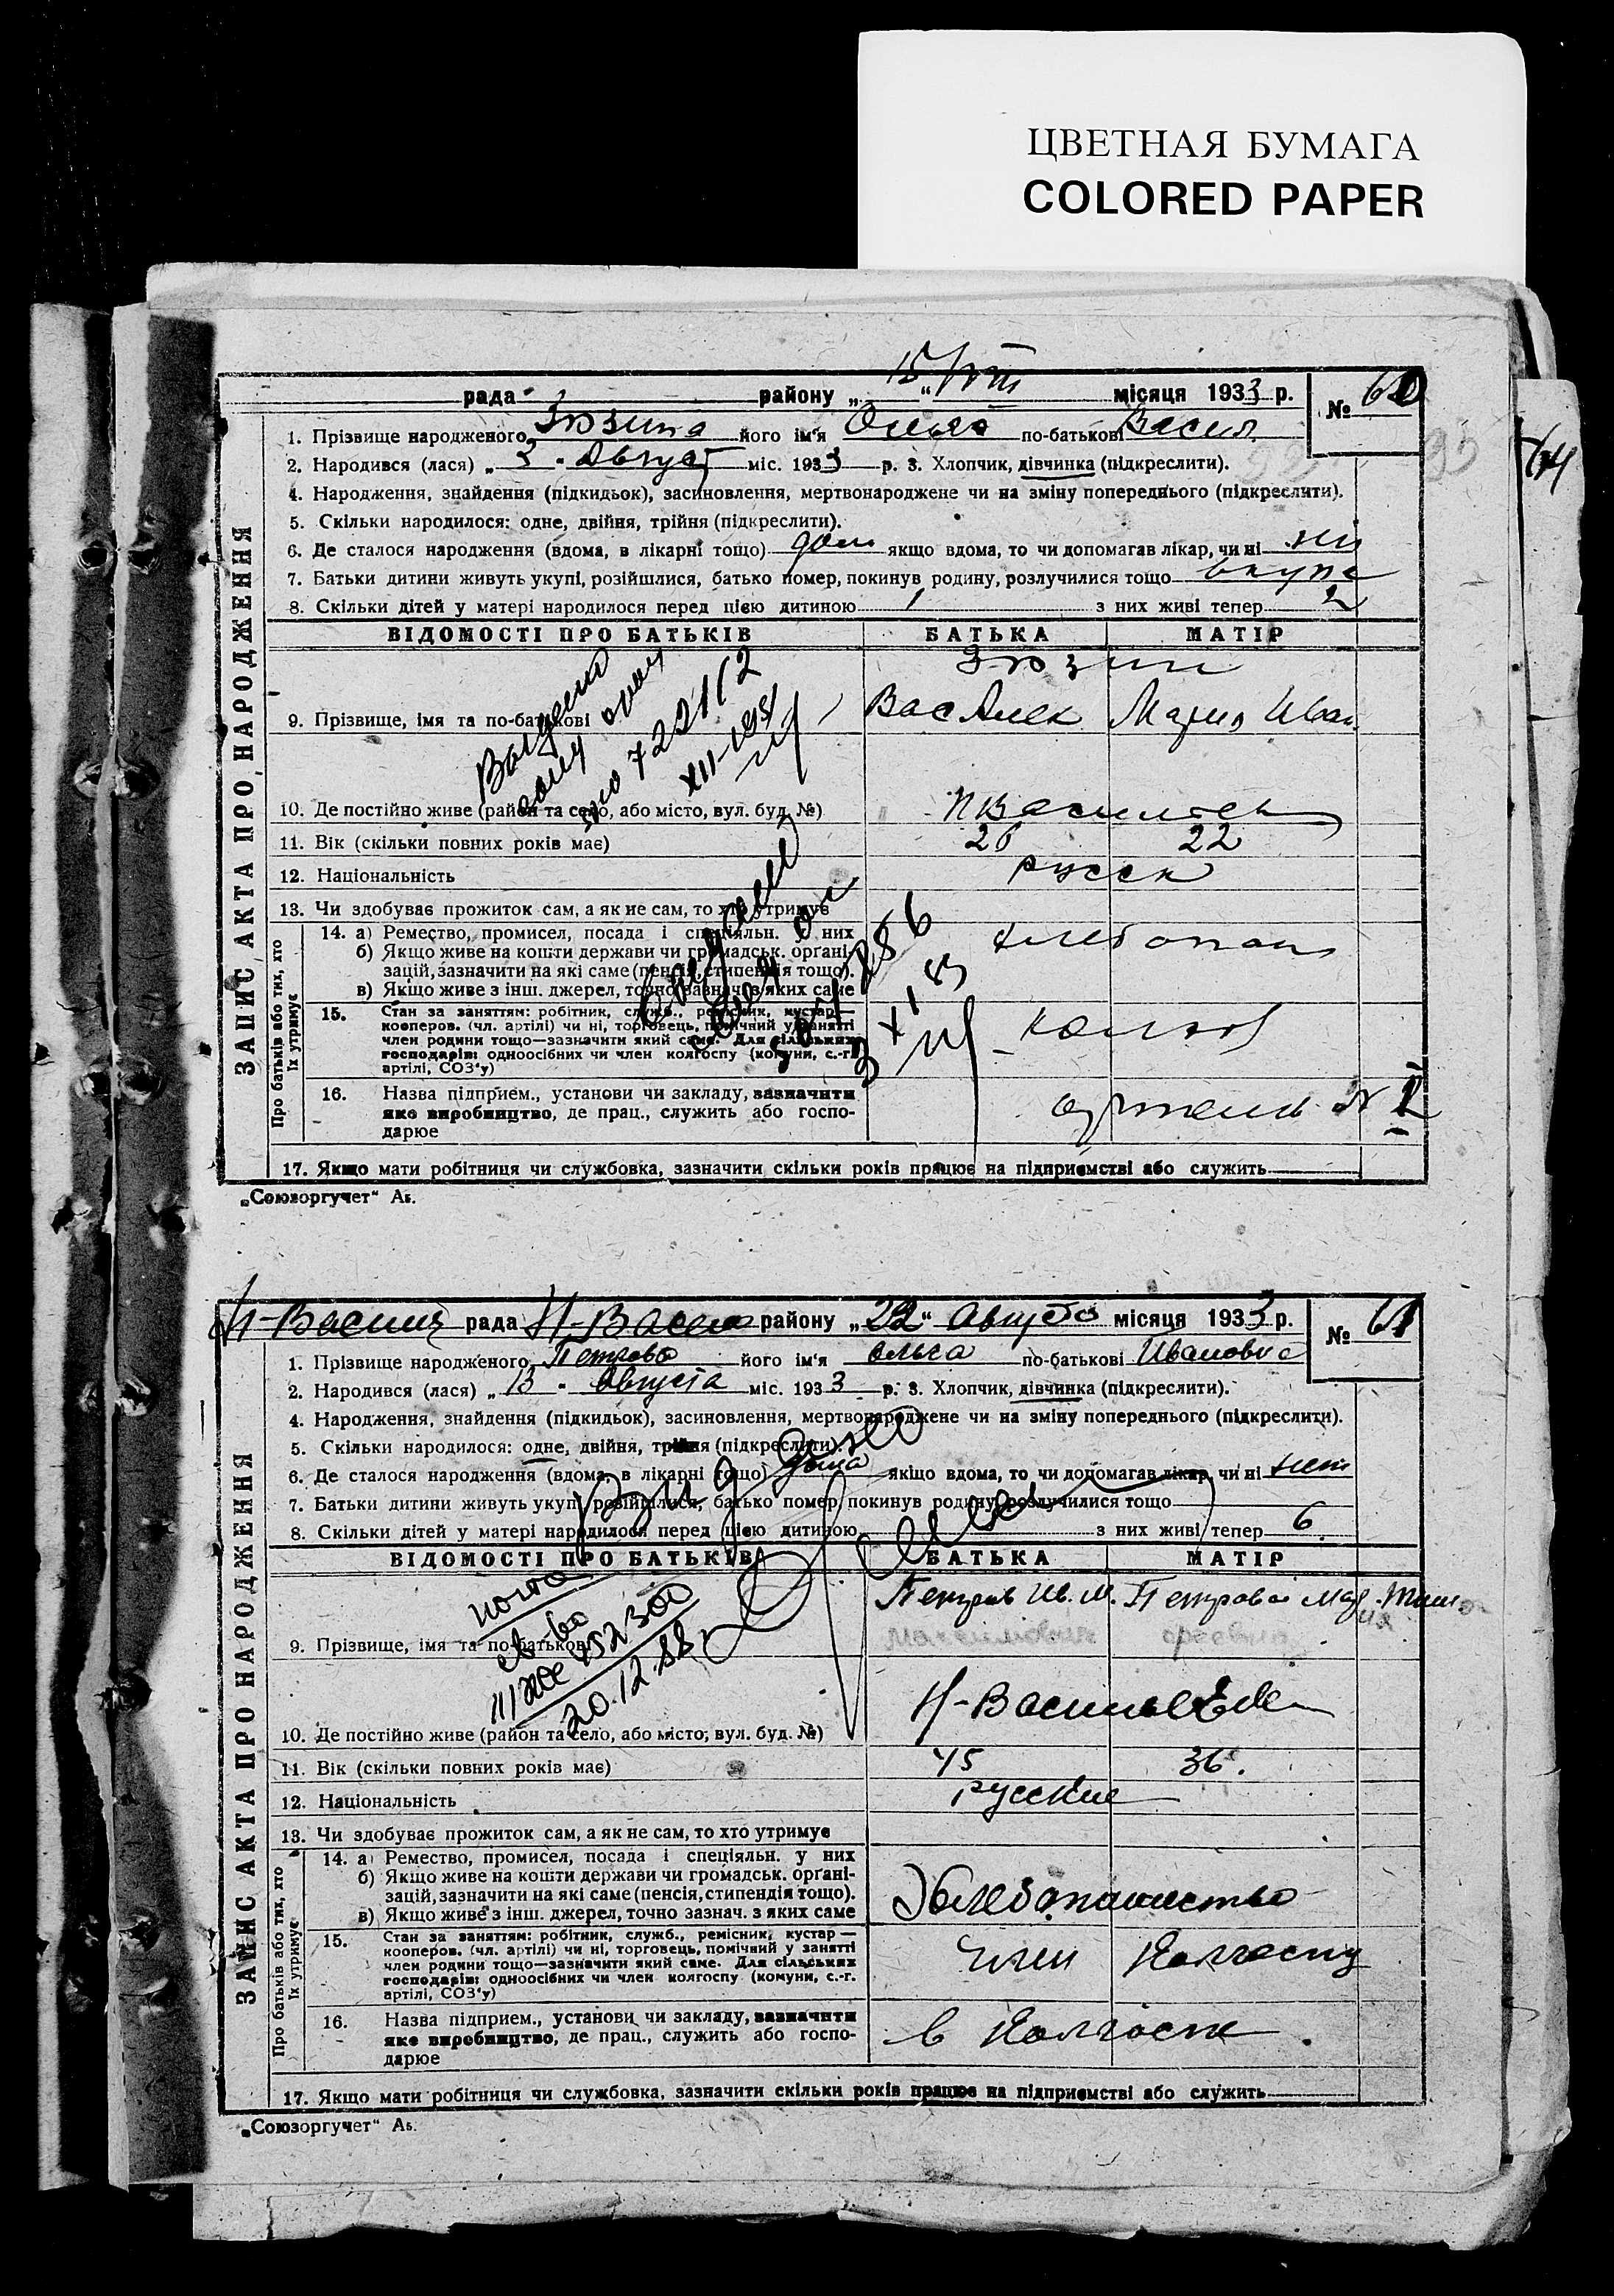 ЦВЕТНАЯ БУМАГА
COLORED PAPER
64
рада району „ 15/VIII “ місяця 1933 р. № 60
ЗАПИС АКТА ПРО НАРОДЖЕННЯ
1. Прізвище народженого Зюзина його ім'я по-батькові Васил.
2. Народився (лася) „ 3 " Август міс. 1933 р. 3. Хлопчик, дівчинка (підкреслити).
4. Народження, знайдення (підкидьок), засиновлення, мертвонароджене чи на зміну попереднього (підкреслити).
5. Скільки народилося: одне, двійня, трійня (підкреслити).
6. Де сталося народження (вдома, в лікарні тощо) дома якщо вдома, то чи допомагав лікар, чи ні ни
7. Батьки дитини живуть укупі, розійшлися, батько помер, покинув родину, розлучилися тощо вкупе
8. Скільки дітей у матері народилося перед цією дитиною 1 з них живі тепер 2
ВІДОМОСТІ ПРО БАТЬКІВ БАТЬКА МАТІР
Зюзин
9. Прізвище, імя та по-батькові Вас Алек Мария Иван
10. Де постійно живе (район та село, або місто, вул. буд. №)
11. Вік (скільки повних років має) 26 22
12. Національність русск
13. Чи здобуває прожиток сам, а як не сам, то хто утримує
Про батьків або тих, хто їх утримує
14. а) Ремество, промисел, посада і спеціяльн. у них
б) Якщо живе на кошти держави чи громадськ. органі-
зацій, зазначити на які саме (пенсія, стипендія тощо).
в) Якщо живе з інш. джерел, точно зазнач. з яких саме
15. Стан за заняттям: робітник, служб., ремісник, кустар —
кооперов. (чл. артілі) чи ні, торговець, помічний у занятті
член родини тощо—зазначити який саме. Для сільських
господарів: одноосібних чи член колгоспу (комуни, с.-г.
артілі, СОЗ'у)
16. Назва підприєм., установи чи закладу, зазначити
яке виробництво, де прац., служить або госпо-
дарює
17. Якщо мати робітниця чи службовка, зазначити скільки років працює на підприємстві або служить
„Союзоргучет“ Аб.
722112
XII-1951
Н-Васил рада Н-Васил району „ 22 “ Августа місяця 1933 р. № 61
ЗАПИС АКТА ПРО НАРОДЖЕННЯ
1. Прізвище народженого Петрова його ім'я Ольга по-батькові Ивановна
2. Народився (лася) „ 13 " Августа міс. 1933 р. 3. Хлопчик, дівчинка (підкреслити).
4. Народження, знайдення (підкидьок), засиновлення, мертвонароджене чи на зміну попереднього (підкреслити).
5. Скільки народилося: одне, двійня, трійня (підкреслити).
6. Де сталося народження (вдома, в лікарні тощо) Дома якщо вдома, то чи допомагав лікар, чи ні нет
7. Батьки дитини живуть укупі, розійшлися, батько помер, покинув родину, розлучилися тощо
8. Скільки дітей у матері народилося перед цією дитиною з них живі тепер 6
ВІДОМОСТІ ПРО БАТЬКІВ БАТЬКА МАТІР
Петров Ив. М. Петрова Мар. Тим
9. Прізвище, імя та по-батькові Максимович
Н-Васильевка
10. Де постійно живе (район та село, або місто, вул. буд. №)
11. Вік (скільки повних років має) 45 36.
12. Національність русские
13. Чи здобуває прожиток сам, а як не сам, то хто утримує
Про батьків або тих, хто їх утримує
14. а) Ремество, промисел, посада і спеціяльн. у них
б) Якщо живе на кошти держави чи громадськ. органі-
зацій, зазначити на які саме (пенсія, стипендія тощо).
в) Якщо живе з інш. джерел, точно зазнач. з яких саме
Хлебопашество
15. Стан за заняттям: робітник, служб., ремісник, кустар —
кооперов. (чл. артілі) чи ні, торговець, помічний у занятті
член родини тощо—зазначити який саме. Для сільських
господарів: одноосібних чи член колгоспу (комуни, с.-г.
артілі, СОЗ'у)
член Колгоспу
16. Назва підприєм., установи чи закладу, зазначити
яке виробництво, де прац., служить або госпо-
дарює
в Колгоспе
17. Якщо мати робітниця чи службовка, зазначити скільки років працює на підприємстві або служить
„Союзоргучет“ Аб.
Выдано
св-во
20.12.88